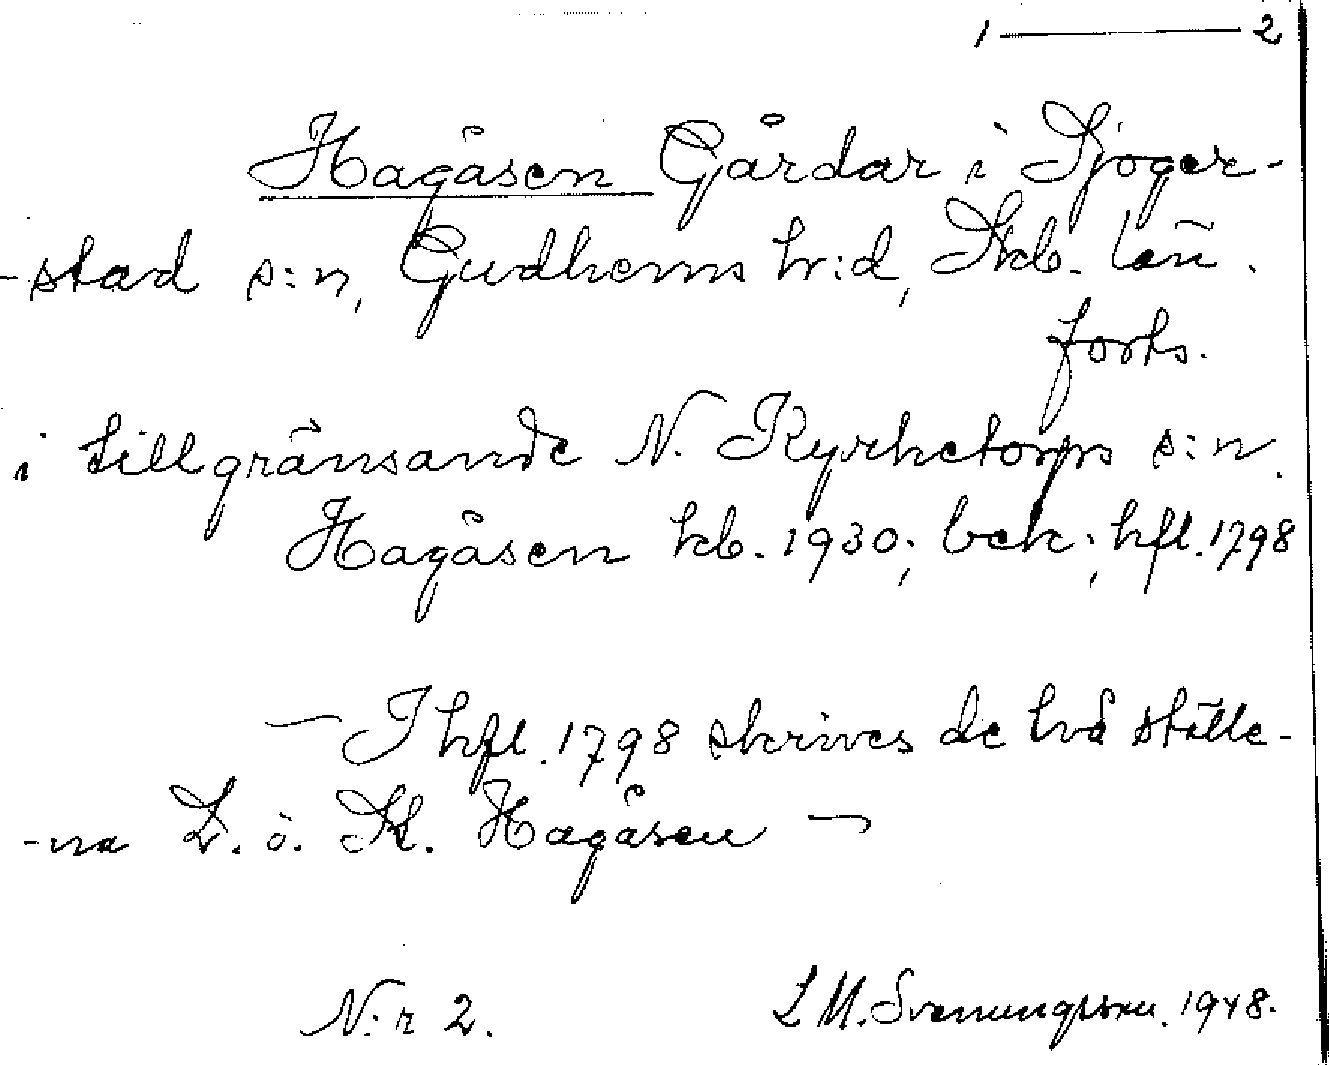 1 — 2
Hagåsen Gårdar i Sjöger-
-stad s:n, Gudhems hr:d, Skb. län.
forts.
i tillgränsande N. Kyrketorps s:n.
Hagåsen kb. 1930; bek; hfl. 1798
— I hfl. 1798 skrives de två ställe-
-na L. o. St. Hagåsen —
N:r 2. L M. Svenungsson. 1948.